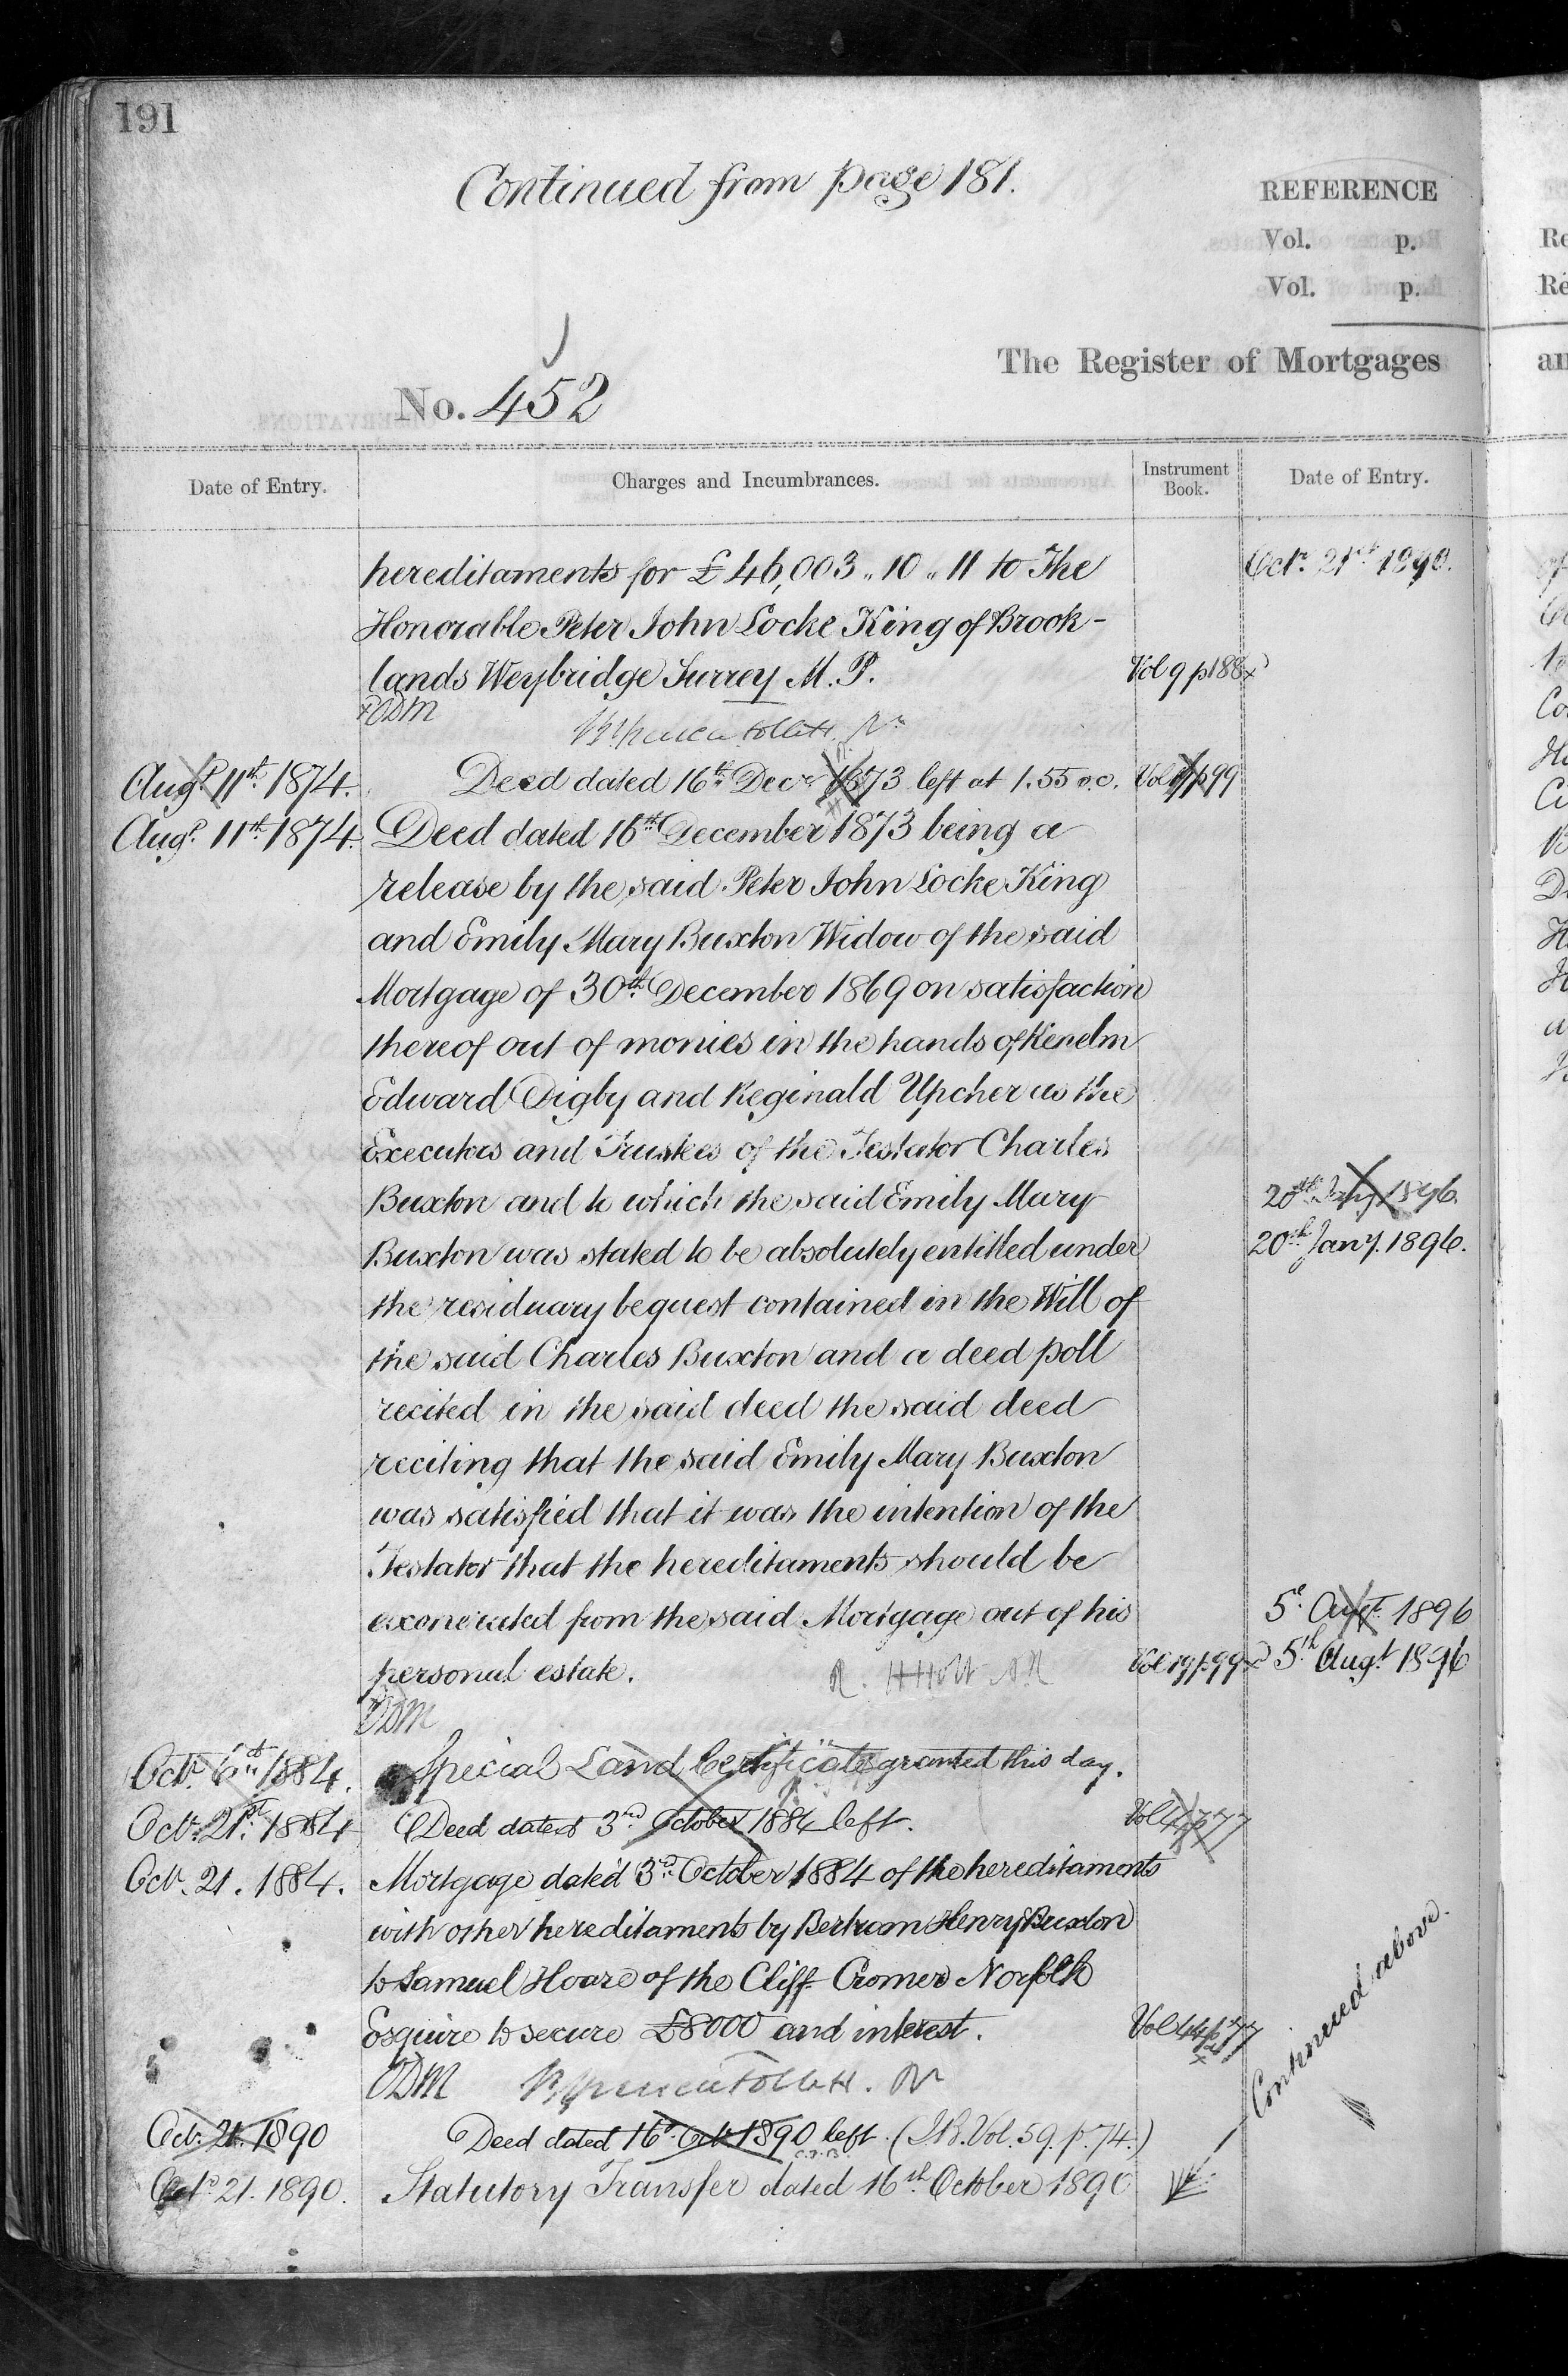 191
Continued from page 181.
REFERENCE
Vol. p.
Vol. p.
The Register of Mortgages
No. 452
Date of Entry.
Charges and Incumbrances.
Instrument Book.
Date of Entry.
hereditaments for £46,003 „ 10 „ 11 to The
Octr. 21st 1890.
Honorable Peter John Locke King of Brook-
lands Weybridge Surrey M. P.
Vol 9 p 188 x
x ODM
Augt 11th. 1874. Deed dated 16th Decr 1873 left at 1.55 o.c. Vol 19 p 99
Augt. 11th. 1874. Deed dated 16th December 1873 being a
release by the said Peter John Locke King
and Emily Mary Buxton Widow of the said
Mortgage of 30th. December 1869 on satisfaction
thereof out of monies in the hands of Kenelm
Edward Digby and Reginald Upcher as the
Executors and Trustees of the Testator Charles
Buxton and to which the said Emily Mary
20th Jany 1896.
Buxton was stated to be absolutely entitled under
20th Jany. 1896.
the residuary bequest contained in the Will of
the said Charles Buxton and a deed poll
recited in the said deed the said deed
reciting that the said Emily Mary Buxton
was satisfied that it was the intention of the
Testator that the hereditaments should be
exonerated from the said Mortgage out of his
5. Augt. 1896
personal estate.
Vol 19 p 99 x
5th Augt 1896
ODM
Octr. 6th 1884. Special Land Certificate granted this day.
Octr. 21st. 1884 Deed dated 3rd October 1884 left. Vol 44 p 77
Octr. 21. 1884. Mortgage dated 3rd. October 1884 of the hereditaments
with other hereditaments by Bertram Henry Buxton
to Samuel Hoare of the Cliff Cromer Norfolk
Esquire to secure £8000 and interest. Vol 44 p 77
x
ODM
Continued above.
Octr. 21. 1890 Deed dated 16th Octr 1890 left. (I.B. Vol. 59. p. 74.)
Octr 21. 1890. Statutory Transfer dated 16th. October 1890